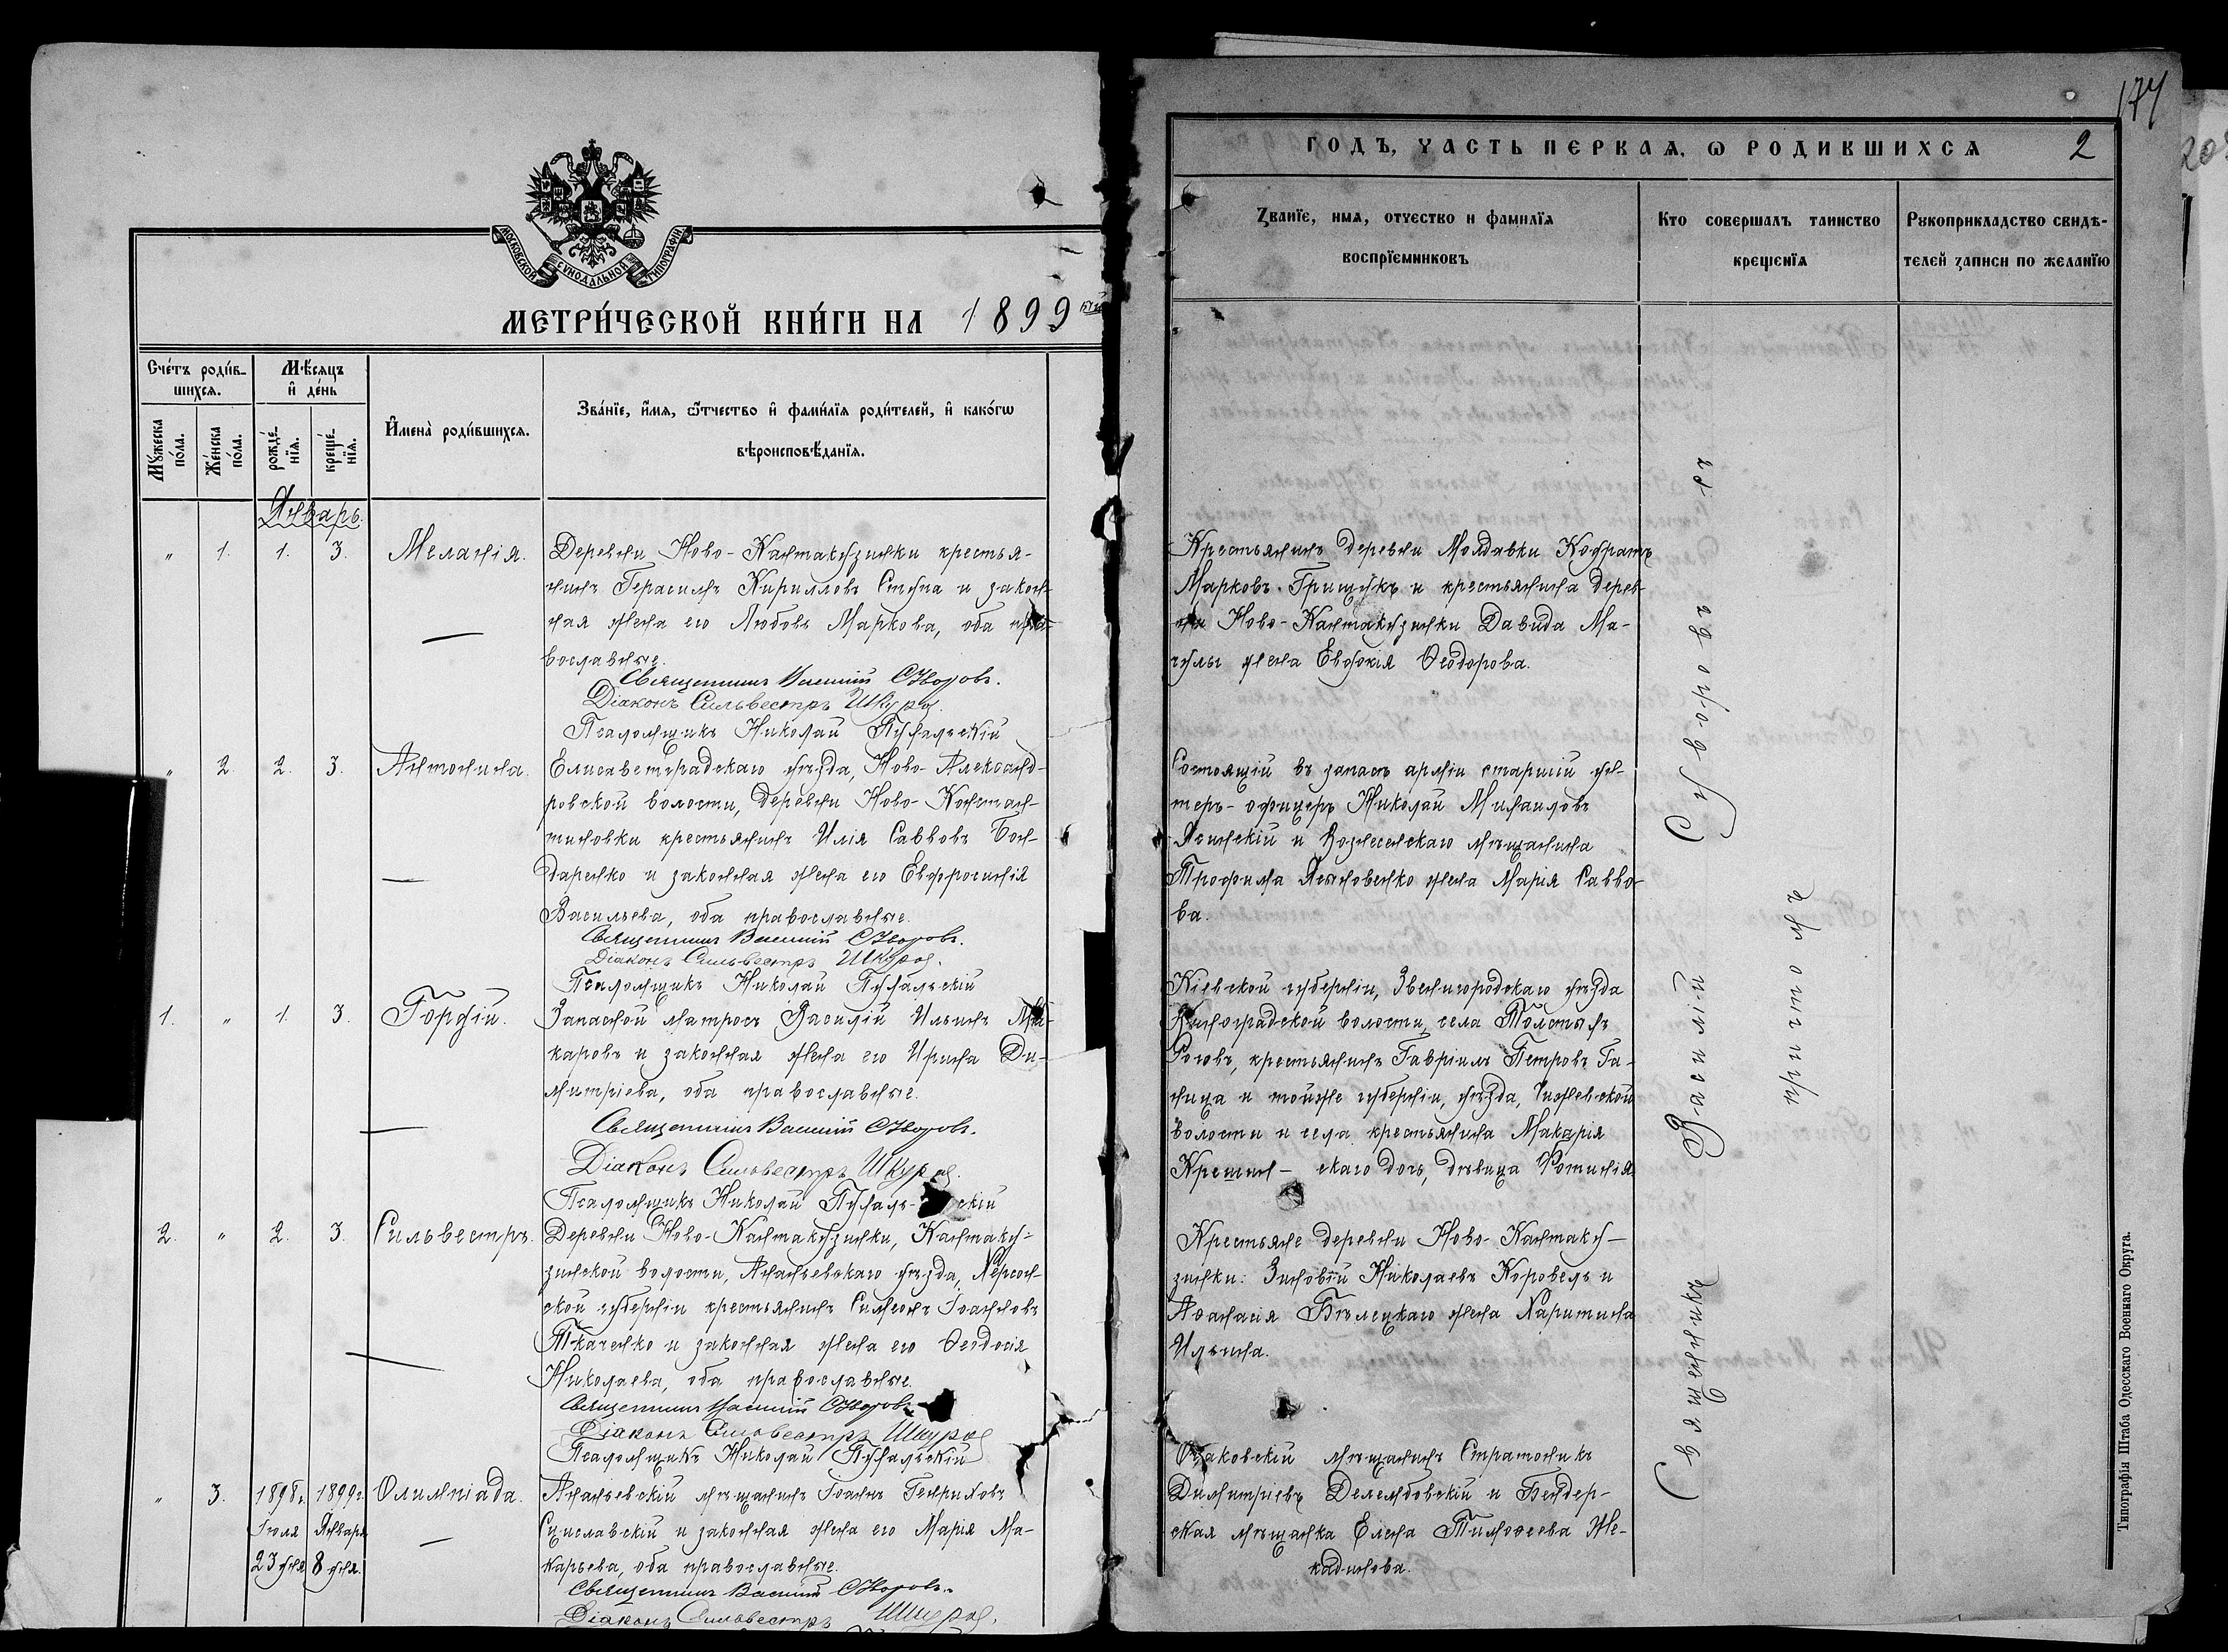 МОСКОВСКОЙ СУНОДАЛЬНОЙ ТИПОГРАФІИ
МЕТРИ́ЧЕСКОЙ КНИ́ГИ НА 1899
Сче́тъ роди́в-
шихсѧ.
Мꙋ́жеска
по́ла.
Же́нска
по́ла.
Мѣ́сяцъ
и҆ де́нь
рожде́-
нїѧ.
креще́-
нїѧ.
И҆мена̀ роди́вшихсѧ.
Зва́нїе, и҆́мѧ, ѻ҆́тчество и҆ фами́лїѧ роди́телей, и҆ како́гѡ
вѣроисповѣ́данїѧ.
Январь.
" 1. 1. 3. Меланія.
Деревни Ново-Кантакузинки крестья-
нинъ Герасимъ Кирилловъ Ступа и закон-
ная жена его Любовь Маркова, оба пра-
вославные.
Священникъ Василій Сѣ
Діаконъ Сильвестръ
Псаломщикъ Николай
" 2. 2. 3. Антонина.
Елисаветградскаго уѣзда, Ново-Александ-
ровской волости, деревни Ново-Констан-
тиновки крестьянинъ Илія Саввовъ Бон-
даренко и законная жена его Евфросинія
Васильева, оба православные.
Священникъ Василій
Діаконъ Сильвестръ
Псаломщикъ Николай
1. " 1. 3. Гордій.
Запасной матросъ Василій Ильинъ Ма-
каровъ и законная жена его Ирина Ди-
митріева, оба православные.
Священникъ Василій
Діаконъ Сильвестръ
Псаломщикъ Николай
2. " 2. 3. Сильвестръ.
Деревни Ново-Кантакузинки, Кантаку-
зинской волости, Ананьевскаго уѣзда, Херсон-
ской губерніи крестьянинъ Симеонъ Іоанновъ
Ткаченко и законная жена его Ѳеодосія
Николаева, оба православные.
Священникъ Василій
Діаконъ Сильвестръ
Псаломщикъ Николай
" 3. 1898 г. 1899 г. Олимпіада.
Іюля Января
23 дня 8 дня.
Ананьевскій мѣщанинъ Іоаннъ Генриховъ
Сциславскій и законная жена его Марія Ма-
карьева, оба православные.
Священникъ Василій
Діаконъ Сильвестръ
174
ГОДЪ, ЧАСТЬ ПЕРВАЯ, Ѡ РОДИВШИХСѦ 2
Званїе, имѧ, отчество и фамилїѧ
воспрїемниковъ
Кто совершалъ таинство
крещенїѧ
Рꙋкоприкладство свидѣ-
телей записи по желанїю
Крестьянинъ деревни Молдавки Кодратъ
Марковъ Грищукъ и крестьянина дерев-
ни Ново-Кантакузинки Давида Ма-
гулы жена Евдокія Ѳеодорова.
Состоящій въ запасѣ арміи старшій ун-
теръ-офицеръ Николай Михаиловъ
Ясинскій и Вознесенскаго мѣщанина
Трофима Яхновенко жена Марія Савво-
ва.
Кіевской губерніи, Звенигородскаго уѣзда
Виноградской волости, села Толстыхъ
Роговъ, крестьянинъ Гавріилъ Петровъ Га-
ница и тойже губерніи, уѣзда, Чижевской
волости и села крестьянина Макарія
скаго дочь, дѣвица Фотинія
Крестьяне деревни Ново-Кантаку-
зинки: Зиновій Николаевъ Коровель и
Аѳанасія Бѣлецкаго жена Харитина
Ильина.
Очаковскій мѣщанинъ Стратоникъ
Димитріевъ Делембовскій и Бендер-
ская мѣщанка Елена Тимоѳеева Же-
кадинова.
Священникъ Василій
причтомъ
Типографія Штаба Одесскаго Военнаго Округа.